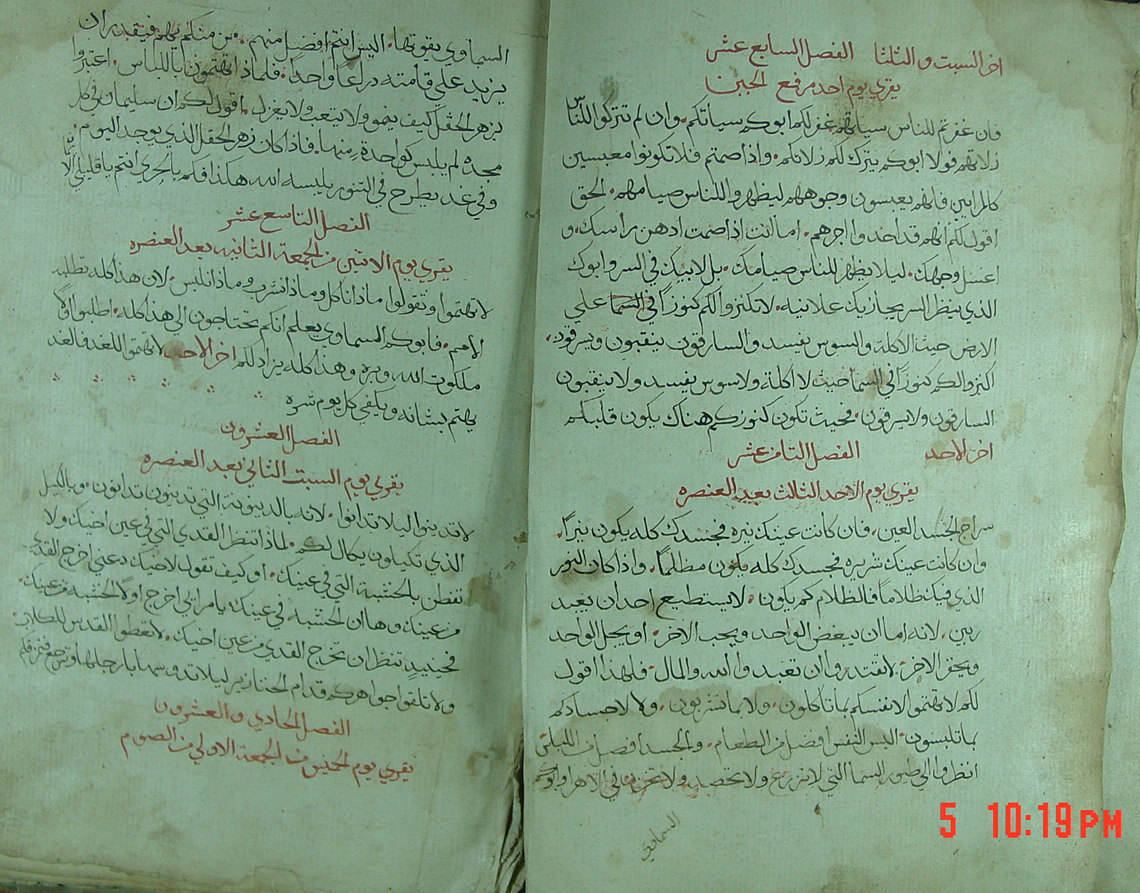 اخر السبت والثلثا الفصل السابع عشر
يقري يوم احد مرفع الجبن
فان غفرتم للناس سياتهم غفر لكم ابوكم سياتكم. وان لم تتركوا للناس
زلاتهم فولا ابوكم يترك لكم زلاتكم. واذا صمتم فلا تكونوا معبسين
كالمرايين فانهم يعبسون وجوههم ليظهروا للناس صيامهم. الحق
اقول لكم انهم قد اخذوا اجرهم. اما انت اذا صمت ادهن راسك. و
اغسل وجهك. ليلا يظهر للناس صيامك. بل لابيك في السر وابوك
الذي ينظر السر يجازيك علانيه. لا تكنزوا لكم كنوزًا في السما علي
الارض حيث الاكلة والسوس يفسد والسارقون ينقبون ويسرقون.
اكنزوا لكم كنوزًا في السما حيث لا اكلة ولا سوس يفسد ولا ينقبون
السارقون ولا يسرقون. فحيث تكون كنوزكم هناك يكون قلبكم
اخر الاحد الفصل الثامن عشر
يقري يوم الاحد الثالث بعد العنصره
سراج الجسد العين. فان كانت عينك نيره فجسدك كله يكون نيرًا.
وان كانت عينك شريره فجسدك كله يكون مظلمًا. واذا كان النور
الذي فيك ظلامًا فالظلام كم يكون. لا يستطيع احد ان يعبد
ربين. لانه اما ان يبغض الواحد ويحب الاخر. او يجل الواحد
ويحقر الاخر. لا تقتدروا ان تعبدوا الله والمال. فلهذا اقول
لكم لا تهتموا لانفسكم بما تاكلون. ولا بما تشربون. ولا لاجسادكم
بما تلبسون. اليس النفس افضل من الطعام. والجسد افضل من اللباس
انظروا الي طيور السما التي لا تزرع ولا تحصد ولا تخزن في الاهرا وابوكم
السماوي
السماوي يقوتها. اليس انتم افضل منهم. من منكم يهتم فيقدر ان
يزيد علي قامته دراعًا واحدًا. فلماذا تهتمون باللباس. اعتبروا
بزهر الحقل كيف ينمو ولا يتعب ولا يغزل. اقول لكم ان سليمان في كل
مجده لم يلبس كواحدة منها. فاذا كان زهر الحقل الذي يوجد اليوم
وفي غد يطرح في التنور يلبسه الله هكذا فكم بالحري انتم يا قليلي
الفصل التاسع عشر
يقري يوم الاثنين من الجمعة الثانيه بعد العنصره
لا تهتموا وتقولوا ماذا ناكل وماذا نشرب وماذا نلبس. لان هذا كله تطلبه
الامم. فابوكم السماوي يعلم انكم تحتاجون الي هذا كله. اطلبوا اولًا
ملكوت الله وبره وهذا كله يزاد لكم اخر الاحد لا تهتموا للغد فالغد
يهتم بشانه ويكفي كل يوم شره
الفصل العشرون
يقري يوم السبت الثاني بعد العنصره
لا تدينوا ليلا تدانوا. لانه بالدينونة التي تدينون تدانون. وبالكيل
الذي تكيلون يكال لكم. لماذا تنظر القدي التي في عين اخيك ولا
تفطن بالخشبة التي في عينك. او كيف تقول لاخيك دعني اخرج القدي
من عينك وها ان الخشبه في عينك يا مرايي اخرج اولًا الخشبه من عينك.
فحينيدٍ تنظر ان تخرج القدي من عين اخيك. لا تعطوا القدس للكلاب
ولا تلقوا جواهركم قدام الخنازير ليلا تدوسها بارجلها وترجع فتمزقكم
الفصل الحادي والعشرون
يقري يوم الخميس من الجمعة الاولي من الصوم
5 10:19 PM